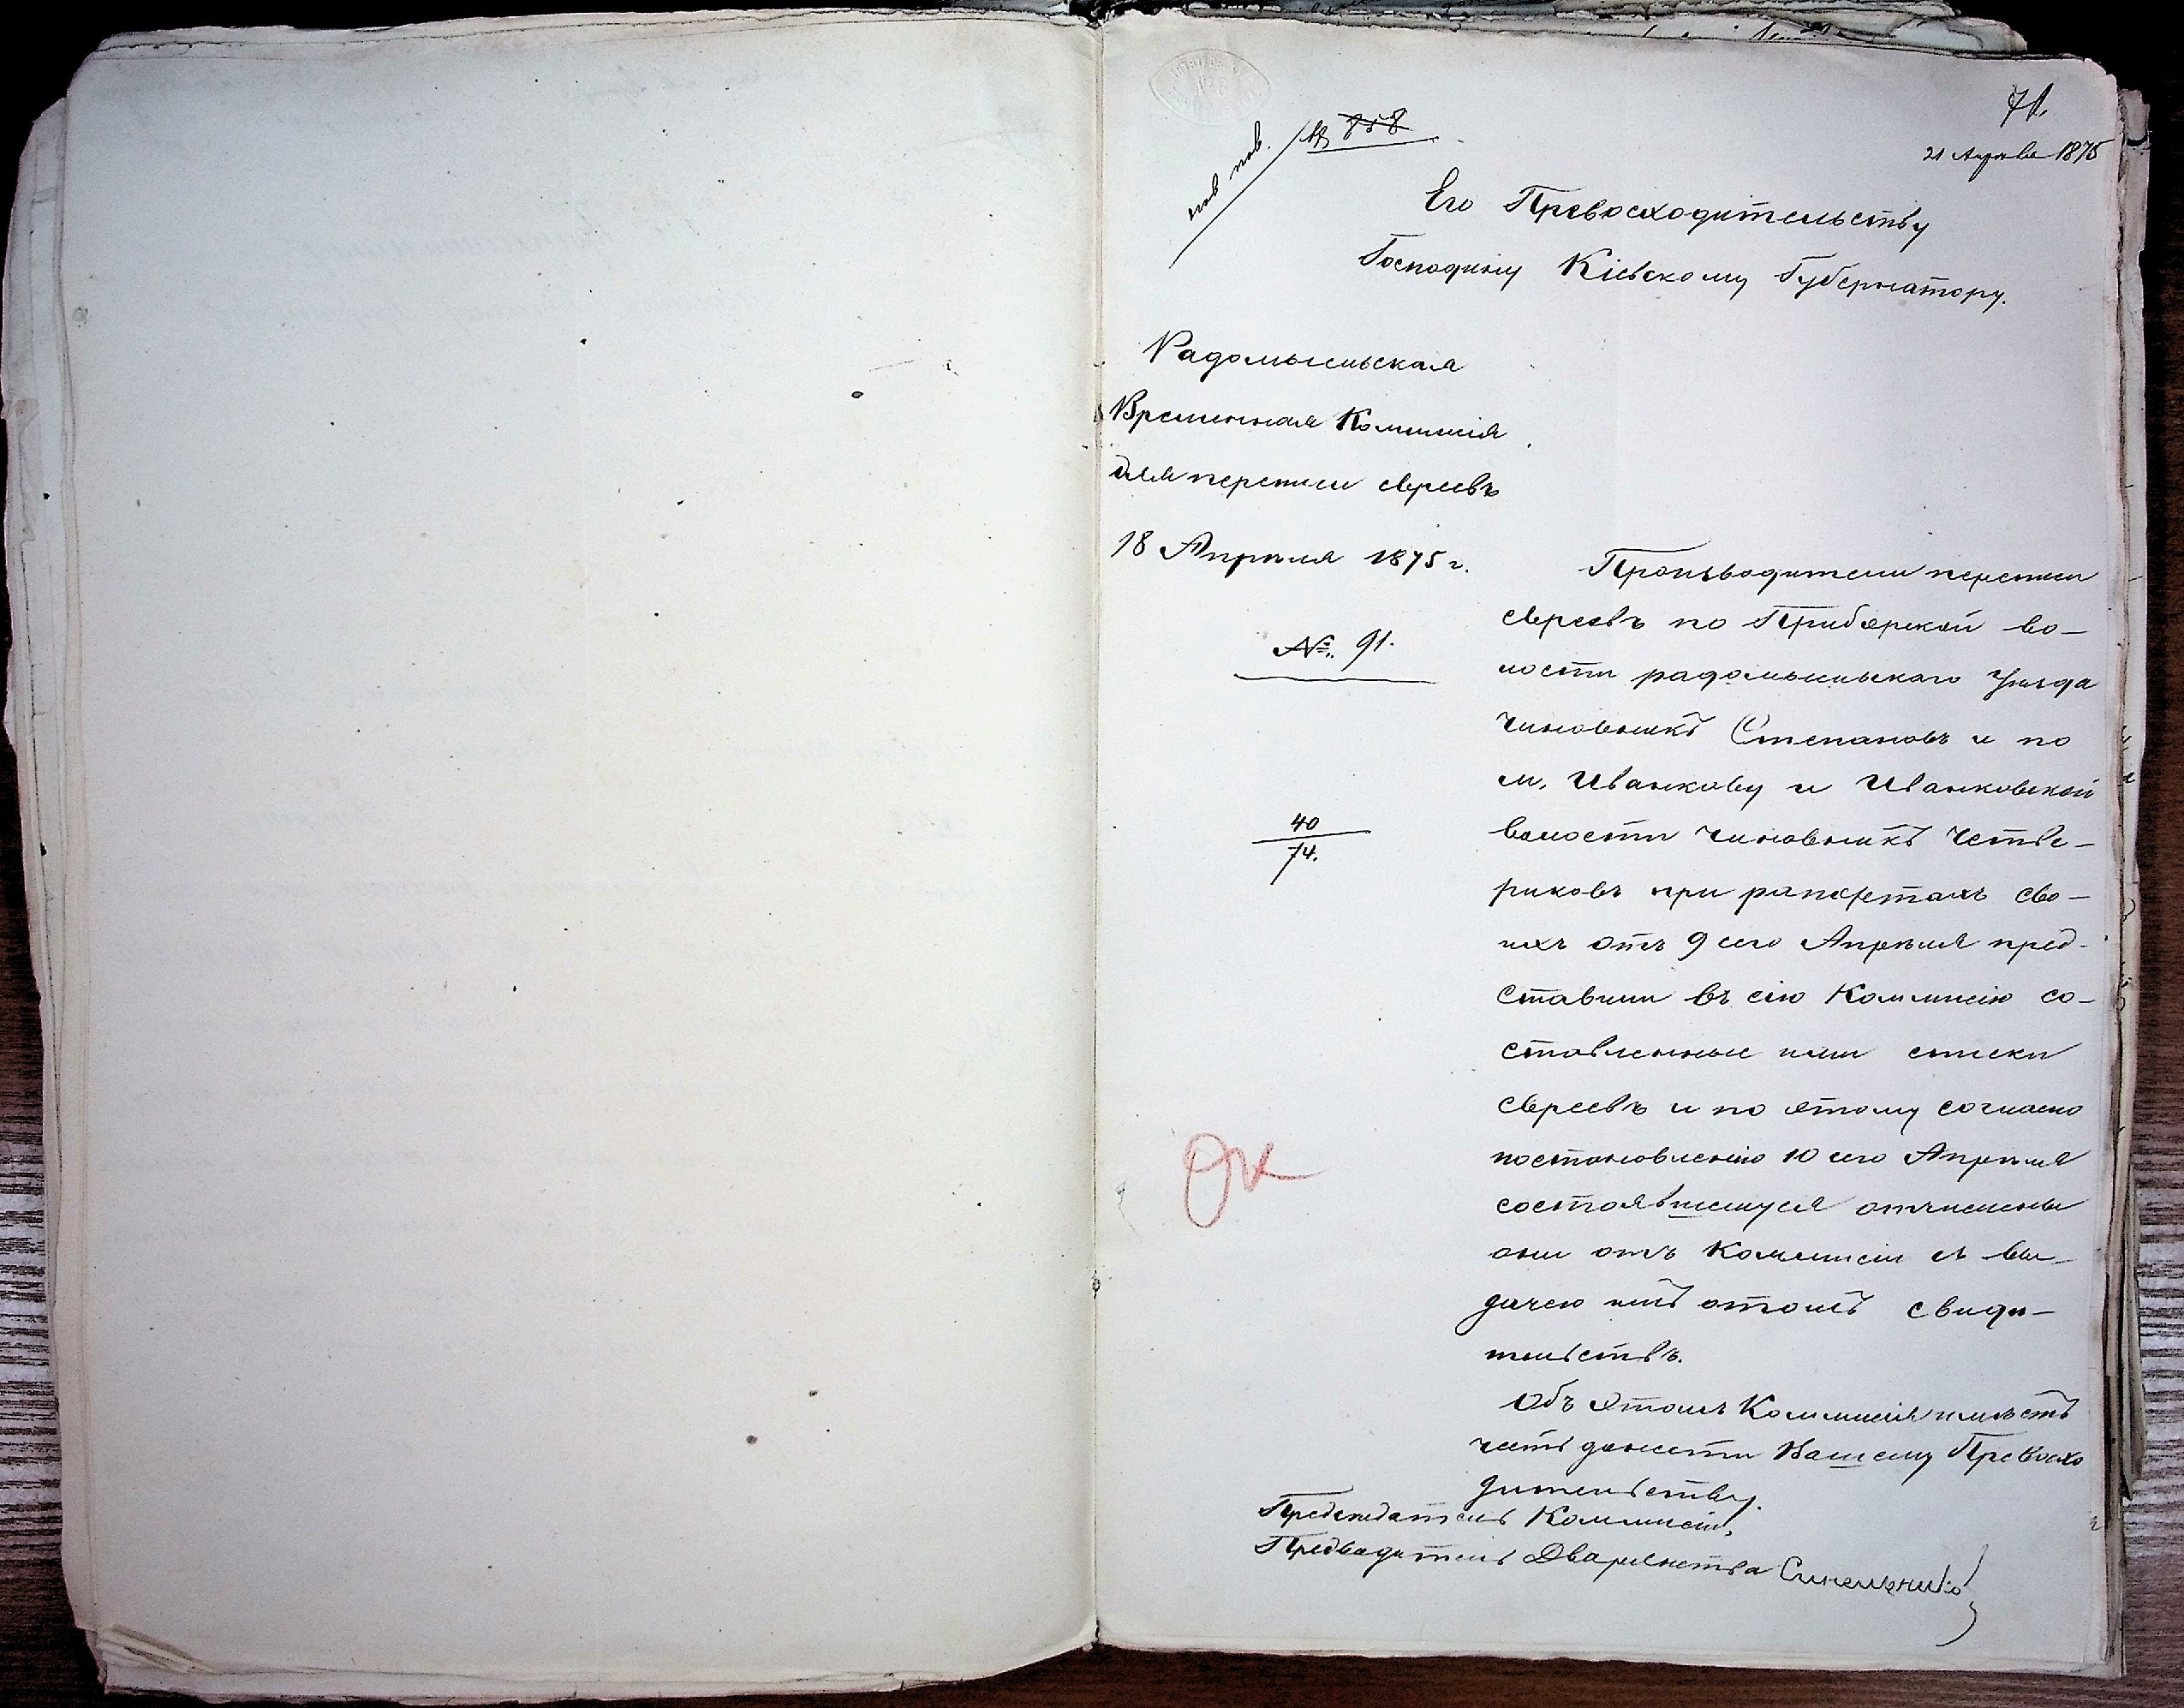 71.
№ 858
21 Апрѣля 1875
Его Превосходительству
Господину Кіевскому Губернатору.
Радомысльская
Временная Коммисія
для переписи евреевъ
18 Апрѣля 1875 г.
№ 91.
40
74.
Производители переписи
евреевъ по Приборской во-
лости радомысльскаго уѣзда
чиновникъ Степановъ и по
м. Иванкову и Иванковской
волости чиновникъ Четве-
риковъ при рапортахъ сво-
ихъ отъ 9 сего Апрѣля пред-
ставили въ сію Коммисію со-
ставленные ими списки
евреевъ и по этому согласно
постановленію 10 сего Апрѣля
состоявшемуся отчислены
они отъ Коммисіи съ вы-
дачею имъ отомъ свидѣ-
тельствъ.
Объ этомъ Коммисія имѣетъ
честь донести Вашему Превосхо
дительству.
Предсѣдатель Коммисіи,
Предводитель Дворянства